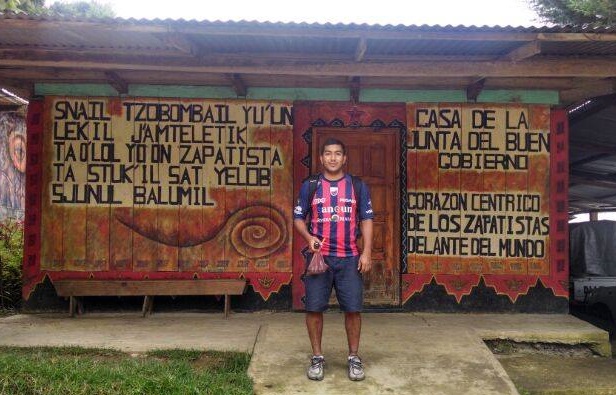 SNAIL TZOBOMBAIL YU'UN
LEKIL J'AMTELETIK
TA O'LOL YO'ON ZAPATISTA
TA STUK'IL SAT YELOB
SJUNUL BALUMIL
CASA DE LA
JUNTA DEL BUEN
GOBIERNO
CORAZON CENTRICO
DE LOS ZAPATISTAS
DELANTE DEL MUNDO
cancun